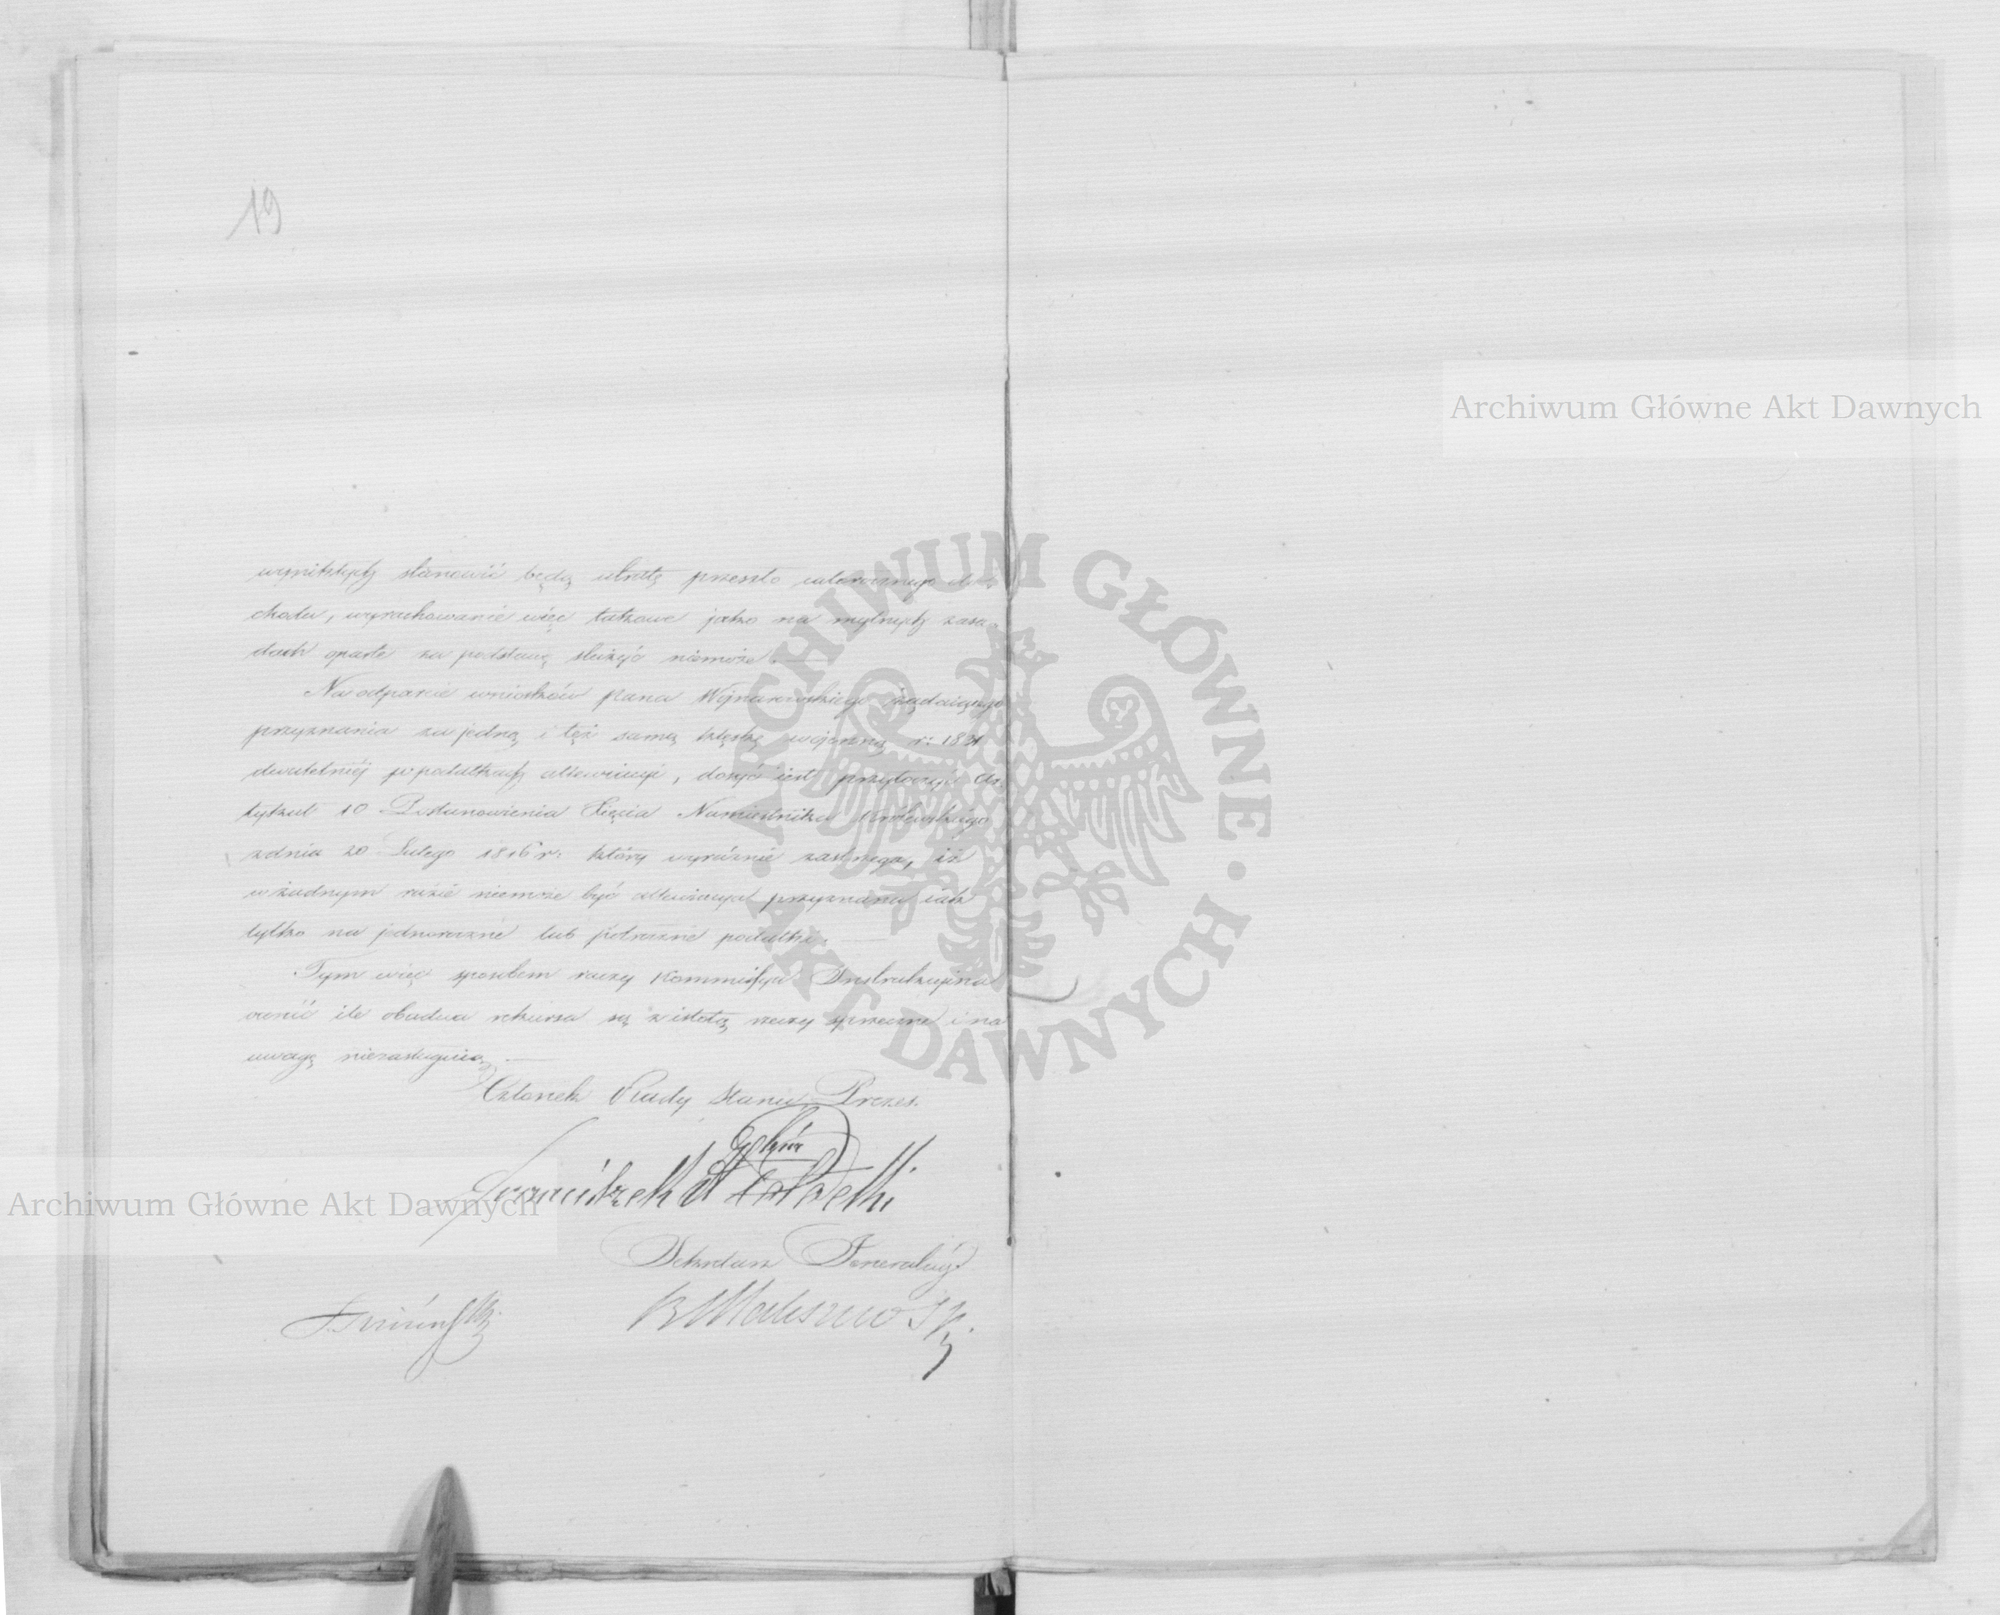 19
wynikłych stanowić będą utratę przeszło całorocznego do-
chodu, wyrachowanie więc takowe jako na mylnych zasa-
dach oparte za podstawę służyć niemoże. —
Na odparcie wniosków Pana Wojnarowskiego żądaiącego
przyznania za jedną i tęż samą klęskę wojenną r: 1831
dwuletniéj w podatkach allewiacyi, dosyć iest przytoczyć Ar
tykuł 10 Postanowienia Xięcia Namiestnika Królewskiego
z dnia 20 Lutego 1816 r: który wyraźnie zastrzega, iż
w żadnym razie niemoże być allewiacya przyznana iak
tylko na jednoroczne lub półroczne podatki. —
Tym więc sposobem raczy Kommissya Instrukcyina
ocenić ile obadwa rekursa są z istotą rzeczy sprzeczne i na
uwagę niezasługuią. —
Członek Rady Stanu Prezes.
Franciszek
Sekretarz Jeneralny.
Archiwum Główne Akt Dawnych
Archiwum Główne Akt Dawnych
ARCHIWUM GŁÓWNE · AKT DAWNYCH ·